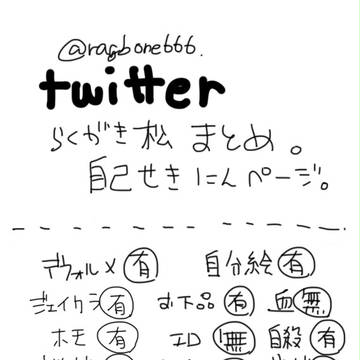 @ragbone666.
twitter
らくがき松 まとめ。
自己せきにんページ。
デフォルメ 有 自分絵 有
ジェイカラ 有 お下品 有 血 無
ホモ 有 エロ 無 自殺 有